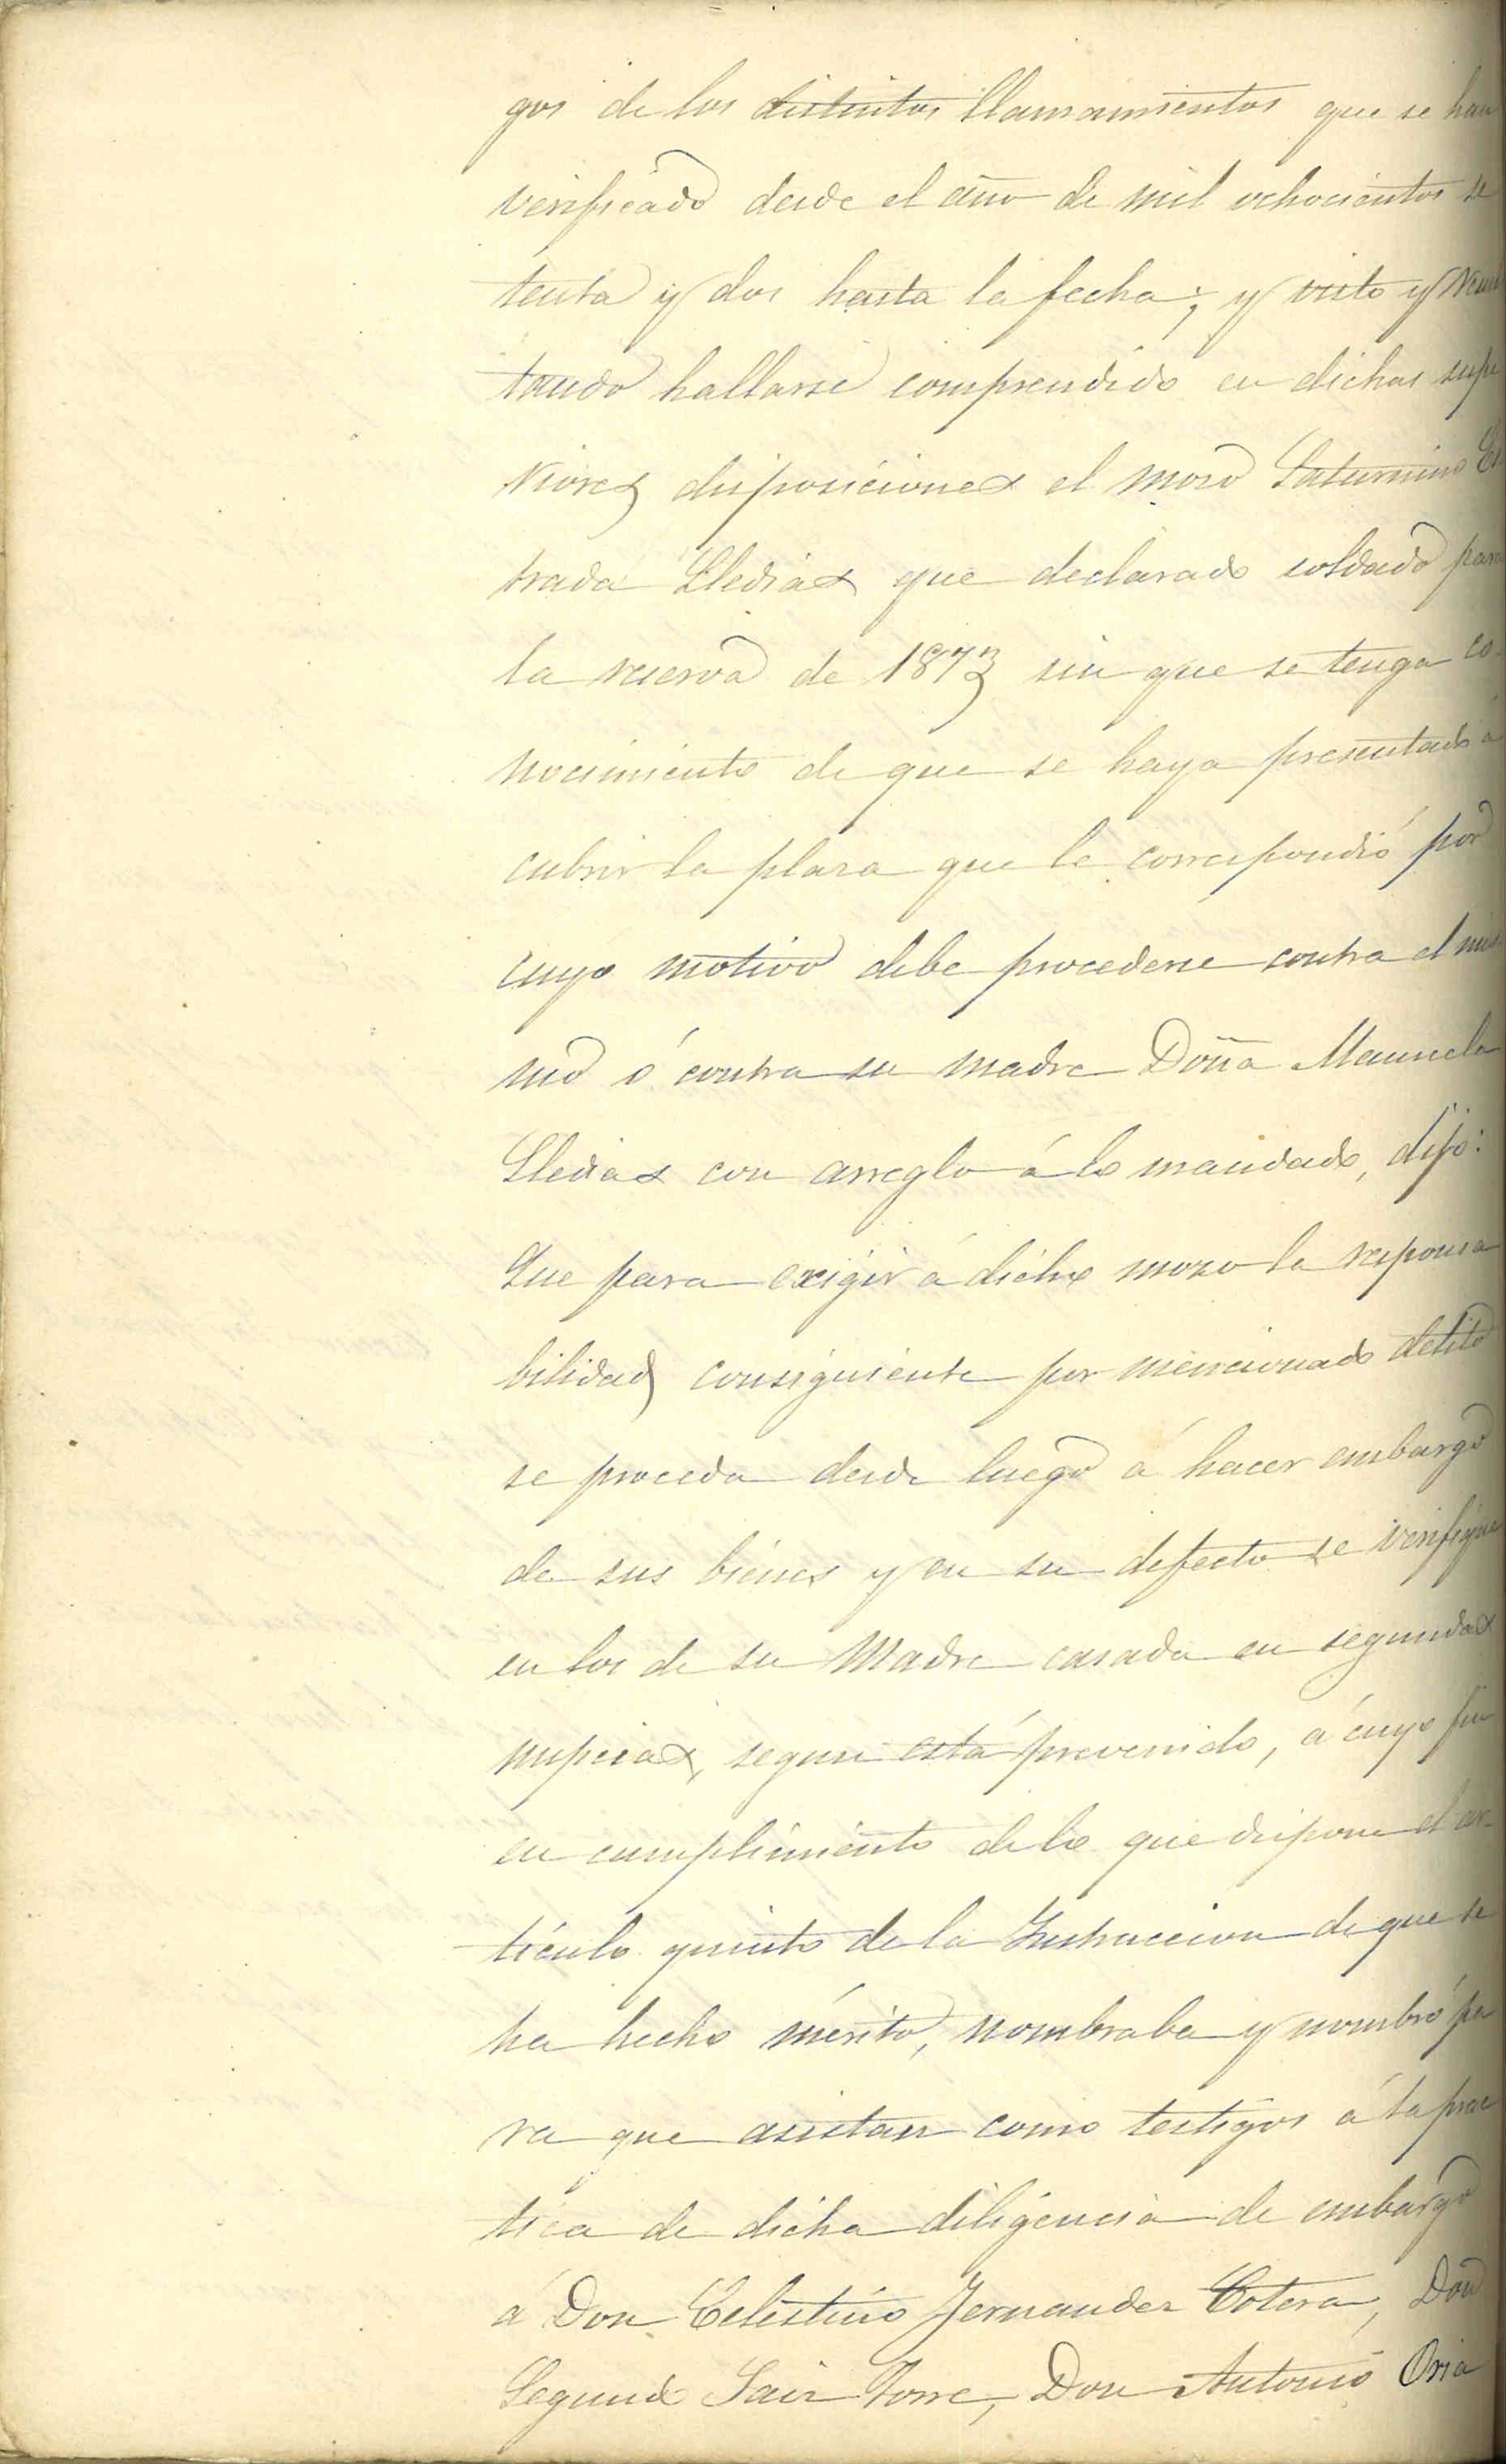 gos de los distintos llamamientos que se han
verificado desde el año de mil ochocientos se
tenta y dos hasta la fecha; y visto y resul
tando hallarse comprendido en dichas supe
riores disposiciones el moso Saturnino Es
trada Lledias que declarado soldado para
la reserva de 1873 sin que se tenga co-
nocimiento de que se haya presentado á
cubrir la plaza que le correspondió por
cuyo motivo debe procederse contra el mis
mo ó contra su madre Doña Manuela
Lledias con arreglo á lo mandado, dijo:
Que para exigir á dicho mozo la responsa
bilidad consiguiente por mencionado delito
se proceda desde luego á hacer embargo
de sus bienes y en su defecto se verifique
en los de su Madre casada en segundas
nupcias, segun está prevenido, á cuyo fin
en cumplimiento de lo que dispone el ar-
tículo quinto de la Instruccion de que se
ha hecho mérito, nombraba y nombró pa
ra que asistan como testigos á la prac
tica de dicha diligencia de embargo
á Don Celestino Fernandez Cotera, Don
Segundo Saiz Torre, Don Antonio Oria